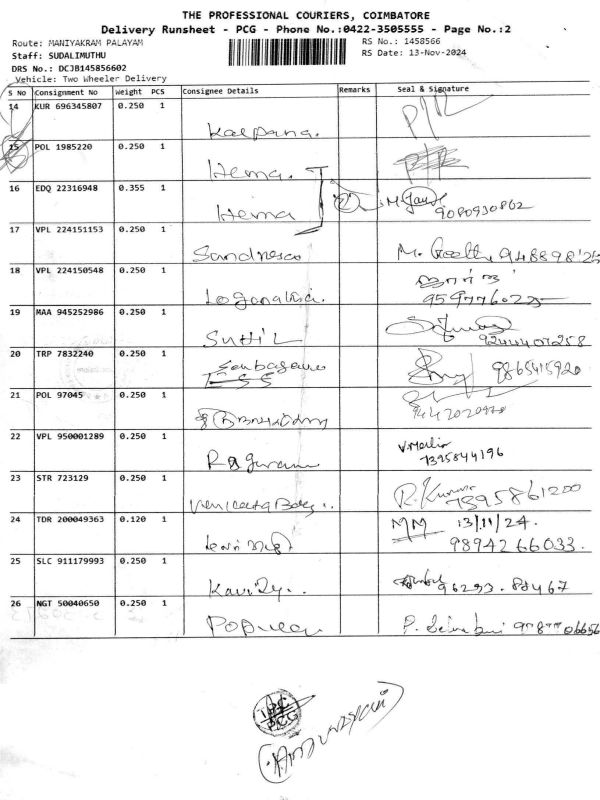 THE PROFESSIONAL COURIERS, COIMBATORE
Delivery Runsheet - PCG - Phone No.:0422-3505555 - Page No.:2
Route: MANIYAKRAM PALAYAM
RS No.: 1458566
Staff: SUDALIMUTHU
RS Date: 13-Nov-2024
DRS No.: DCJB145856602
Vehicle: Two Wheeler Delivery
S No Consignment No Weight PCS Consignee Details Remarks Seal & Signature
14 KUR 696345807 0.250 1
Kalpana.
15 POL 1985220 0.250 1
Hema.
16 EDQ 22316948 0.355 1
Hema 2 9080930862
17 VPL 224151153 0.250 1
M. Geetha
18 VPL 224150548 0.250 1
19 MAA 945252986 0.250 1
9244407258
20 TRP 7832240 0.250 1
9865415920
21 POL 97045 0.250 1
22 VPL 950001289 0.250 1
V.Merlin
7395844196
23 STR 723129 0.250 1
R. Kumar 7395861200
24 TDR 200049363 0.120 1
MM 13/11/24.
9894266033.
25 SLC 911179993 0.250 1
96293.88467
26 NGT 50040650 0.250 1
PCG